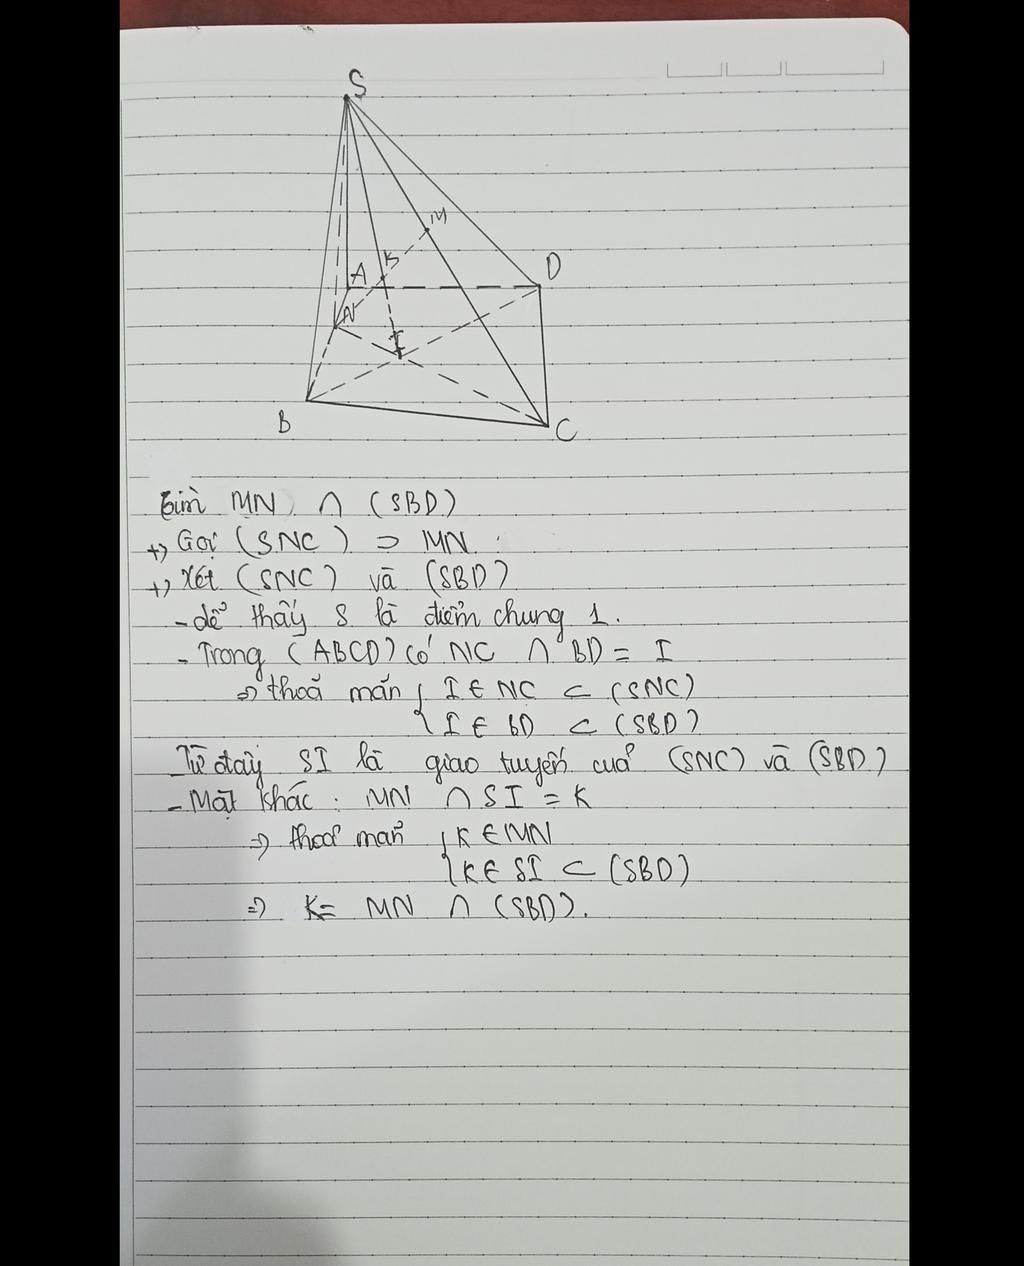 S
M
K
A
D
N
I
B
C
Tìm MN ∩ (SBD)
+) Gọi (SNC) ⊃ MN.
+) Xét (SNC) và (SBD)
- dễ thấy S là điểm chung 1.
- Trong (ABCD) có NC ∩ BD = I
⇒ thoả mãn { I ∈ NC ⊂ (SNC)
{ I ∈ BD ⊂ (SBD)
Từ đây SI là giao tuyến của (SNC) và (SBD)
- Mặt khác : MN ∩ SI = K
⇒ thoả mãn { K ∈ MN
{ K ∈ SI ⊂ (SBD)
⇒ K = MN ∩ (SBD).